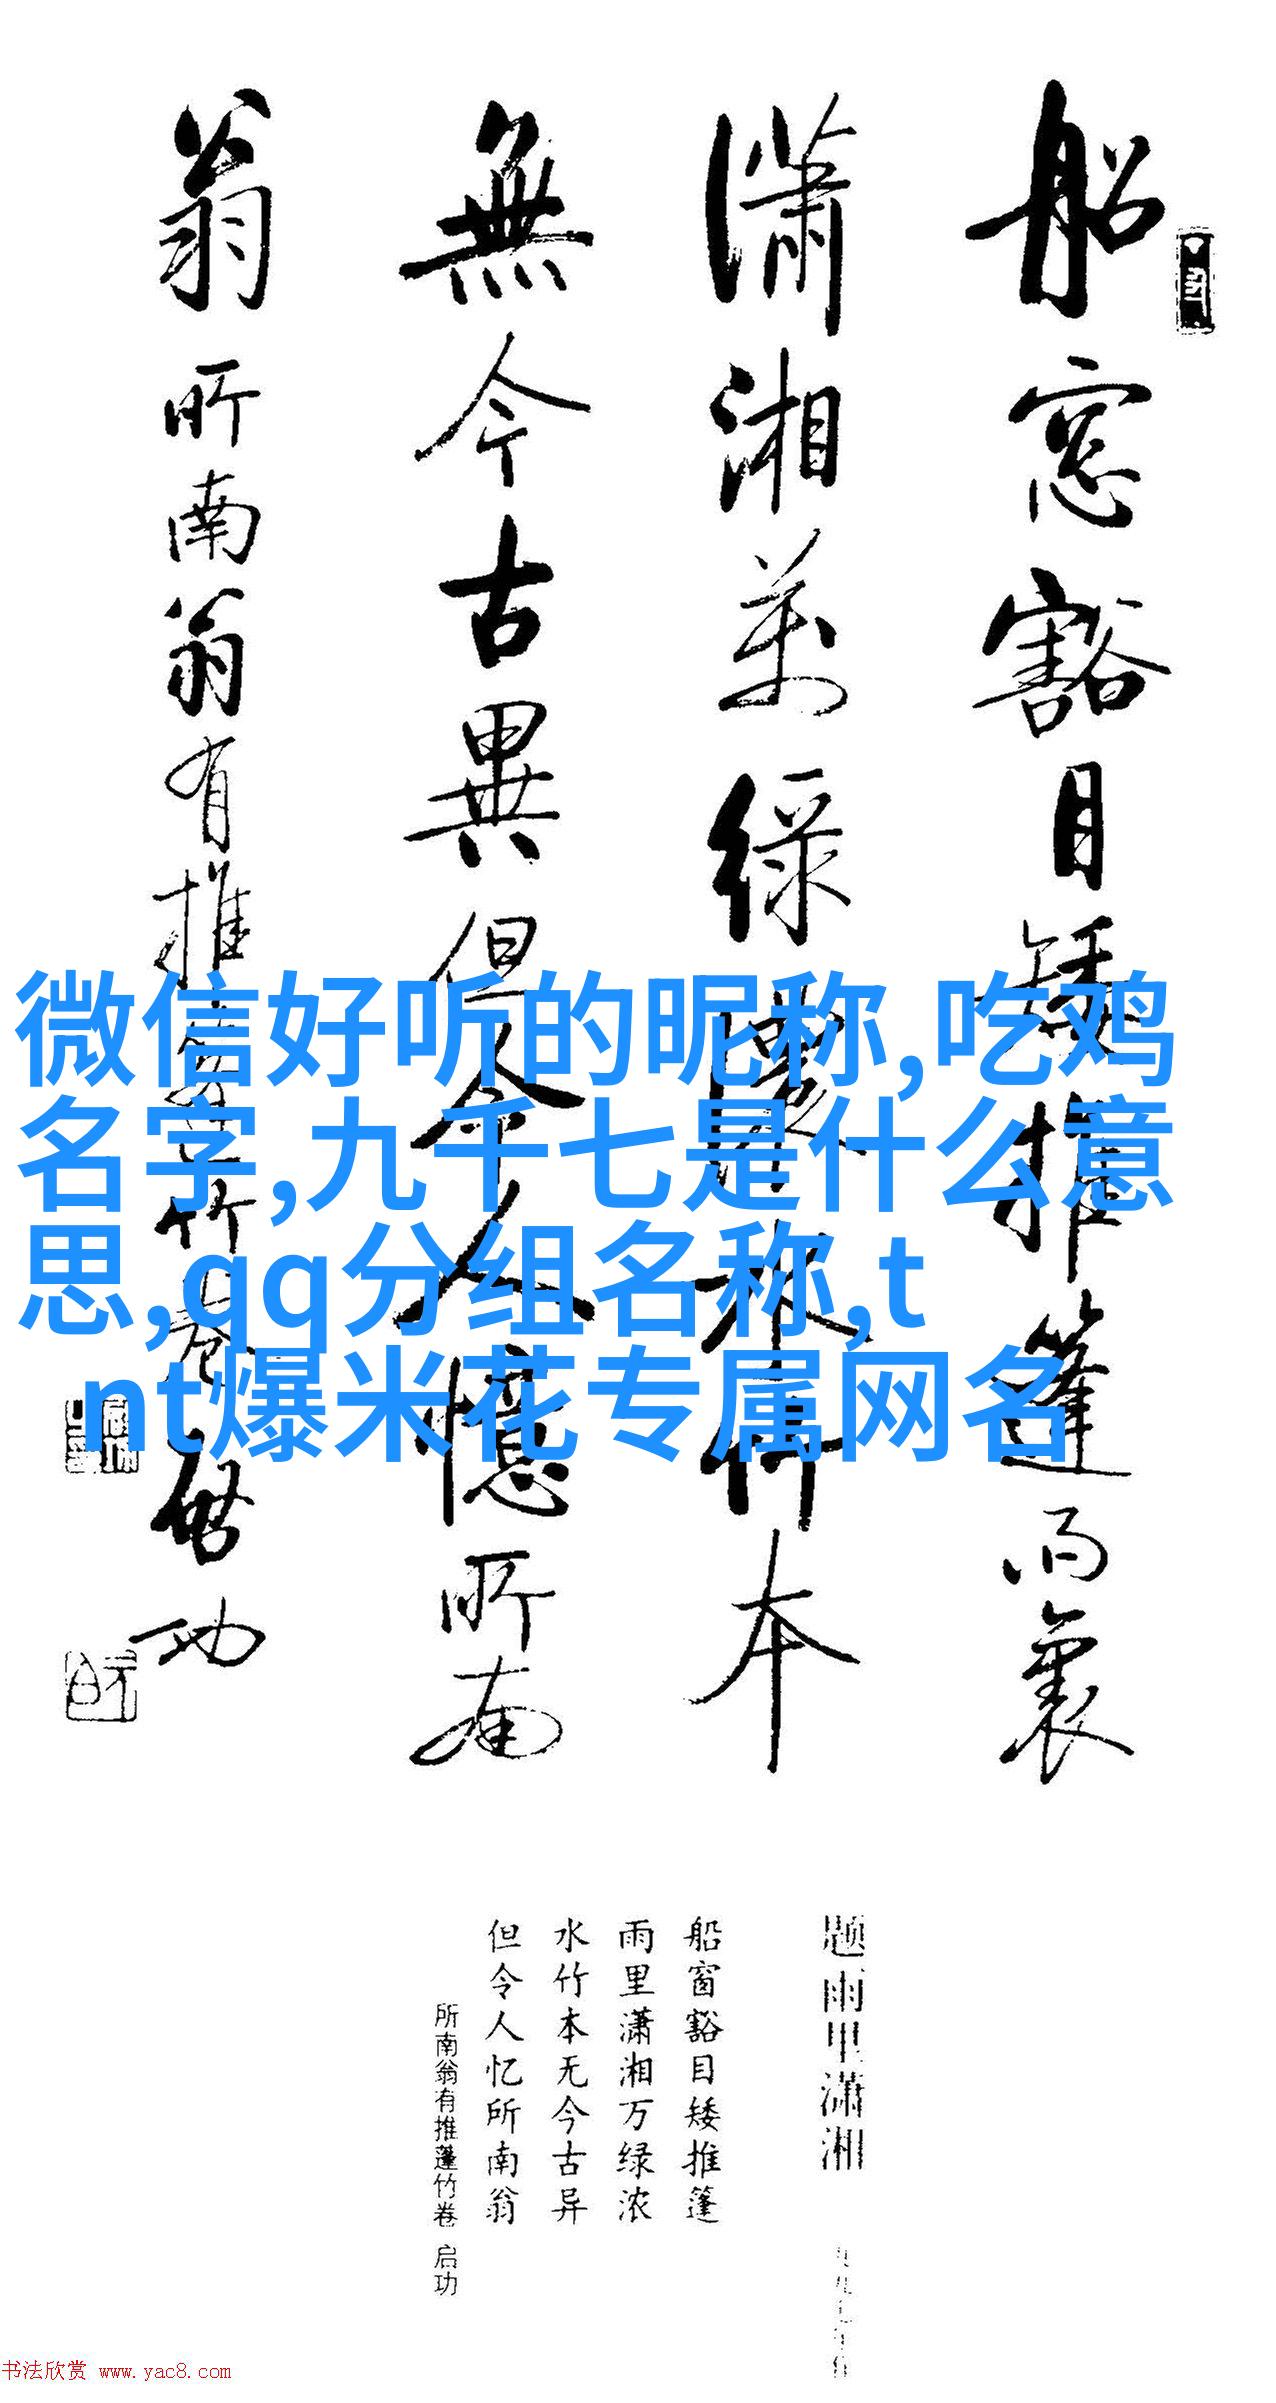 船窓豁目矮推篷雨裏
瀟湘萬緑濃水竹本
無今古異但令人憶所南
翁 所南翁有推篷竹卷 啓功
微信好听的昵称,吃鸡
名字,九千七是什么意
思,qq分组名称,t
nt爆米花专属网名
题雨里潇湘
船窗豁目矮推篷
雨里潇湘万绿浓
水竹本无今古异
但令人忆所南翁
所南翁有推篷竹卷 启功
书法欣赏 www.yac8.com